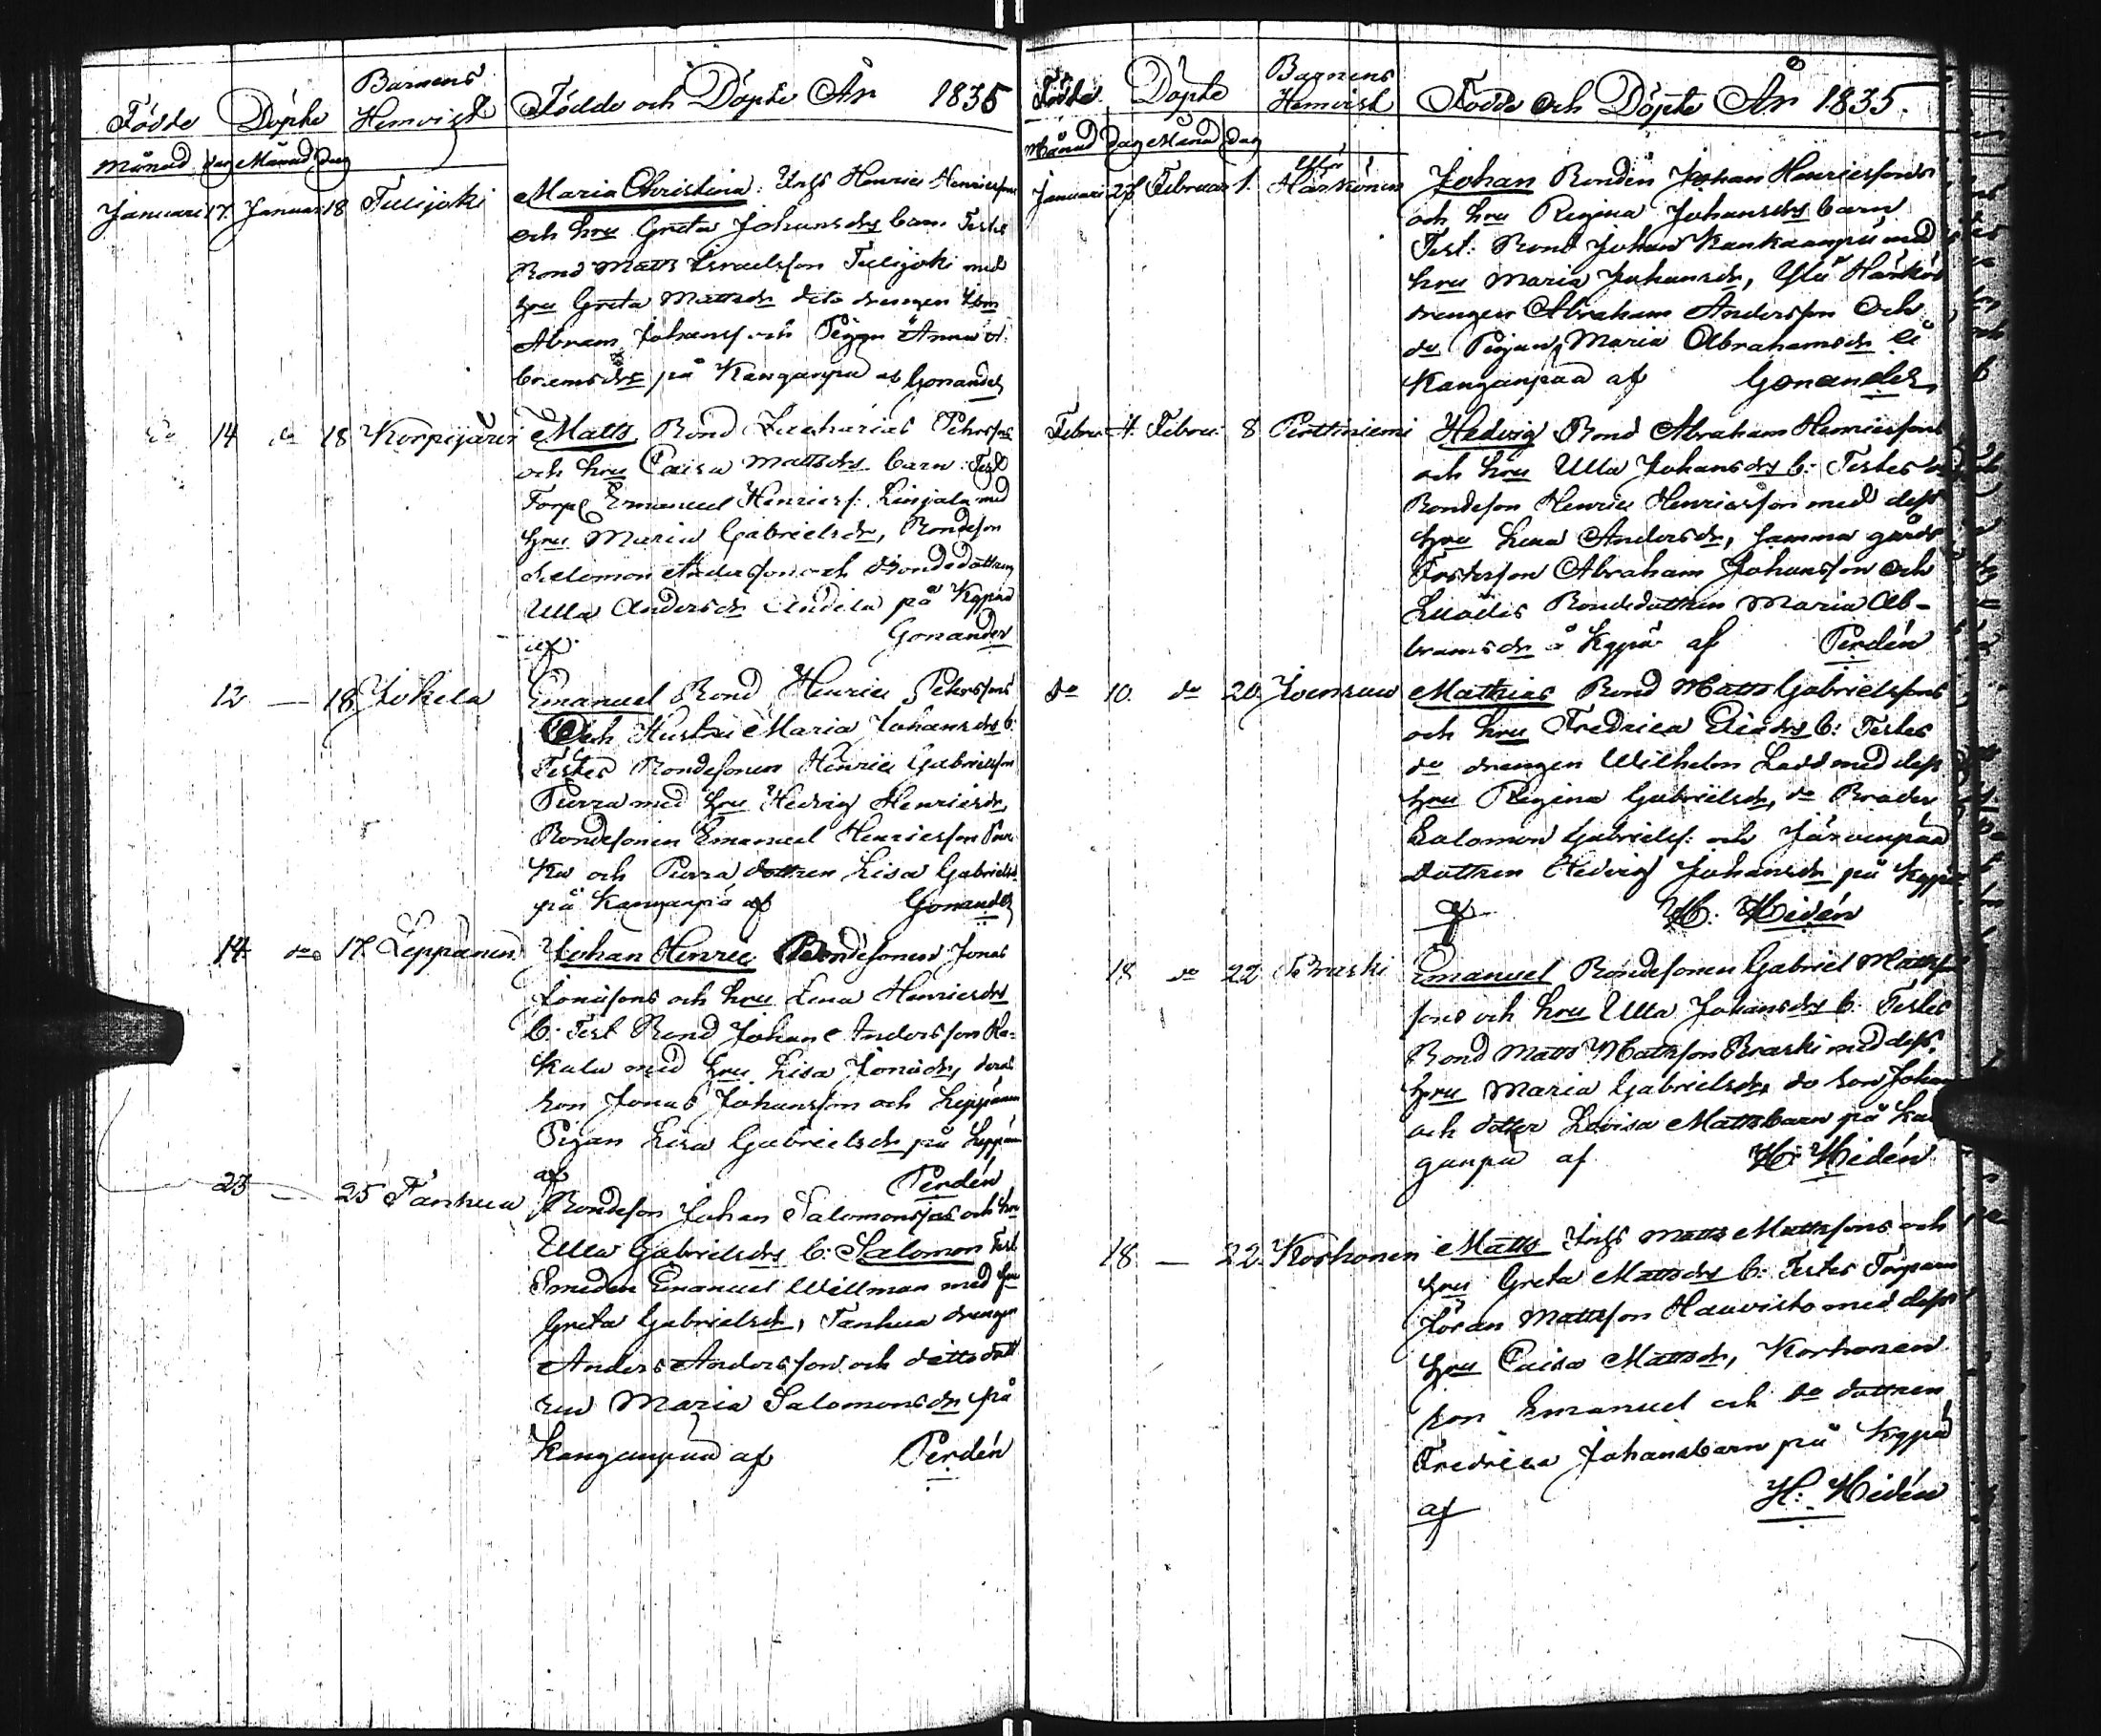 Födde Döpte Barnens Hemvist Födde och Döpte År 1835
Månad dag Månad dag
Januari 17. Januari 18 Tulijoki Maria Christina: Inhs Henric Henricsons
och hru Greta Johansdrs barn. Testes
Bond Matts Israelsson Tulijoki med
hru Greta Mattsdr dito drengen
Abram Johansf och Pigan Anna A-
bramsdr på Kanganpä af Gonander
do 14 do 18 Korpijärvi Matts Bond Zacharias Pehrsons
och hru Caisa Mattsdrs barn: Test
Torp Emanuel Henricsf: med
hru Maria Gabrielsdr, Bondeson
Salomon Andersson och Bondedottren
Ulla Andersdr Andila på Kgpää
af Gonander
12 — 18 Jokela Emanuel Bond Henric Petersons
Och Hustru Maria Johansdrs b:
Testes Bondesonen Henric Gabrielsson
Purra med hru Hedvig Henricsdr,
Bondesonen Emanuel Henricsson
och Purra dottren Lisa Gabrielsdr
på Kanganpä af Gonander
14 do 17. Leppänen Johan Henric Bondesonens Jonas
Jonasons och hru Lena Henricsdrs
b: Test Bond Johan Andersson Ka-
kula med hru Lisa Jonasdr, deras
son Jonas Johansson och Leppänen
Pigan Lisa Gabrielsdr på Leppänen
af Perdén
23 — 25 Tanhua Bondeson Johan Salomonsons och hru
Ulla Gabrielsdrs b: Salomon Test
Smeden Emanuel Willman med hru
Greta Gabrielsdr, Tanhua drengen
Anders Andersson och ditto dott
ren Maria Salomonsdr på
Kanganpää af Perdén
Födde Döpte Barnens Hemvist Födde Och Döpte År 1835.
Månad dag Månad dag
Januari 28 Februar 1. Ylä Härkönen Johan Bonden Johan Henricsons
och hru Regina Johansdrs barn
Test: Bond Johan Kankaanpä med
hru Maria Johansdr, Ylä Härkön
drengen Abraham Andersson Och
do Pigan Maria Abrahamsdr å
Kanganpää af Gonander
Febru 4. Febru 8 Perttiniemi Hedvig Bond Abraham Henricsons
och hru Ulla Johansdrs b: Testes
Bondeson Henric Henricsson med dess
hru Lena Andersdr, samma gårds
Fosterson Abraham Johansson och
Bondedottren Maria Ab-
bramsdr å Kgpä af Perdén
do 10. do 20 Joensuu Mathias Bond Matts Gabrielsons
och hru Fredrica b: Testes
do drengen Wilhelm Ladd med dess
hru Regina Gabrielsdr, do Broder
Salomon Gabrielsf: och Järvenpää
dottren Hedvig Johansdr på Kgpä
af H: Hidén
18 do 22 Braski Emanuel Bondesonen Gabriel Matts
sons och hru Ulla Johansdrs b: Testes
Bond Matts Mattsson Braski med dess
hru Maria Gabrielsdr, do son Johan
och dotter Lovisa Mattsbarn på Kan
ganpä af H: Hidén
18 — 22. Korhonen Matts Inhs Matts Mattssons och
hru Greta Mattsdrs b: Testes Torparn
Jöran Mattsson Haavisto med dess
hru Caisa Mattsdr, Korhonen
son Emanuel och do dottren
Fredrica Johansbarn på Kgpä
af H: Hidén